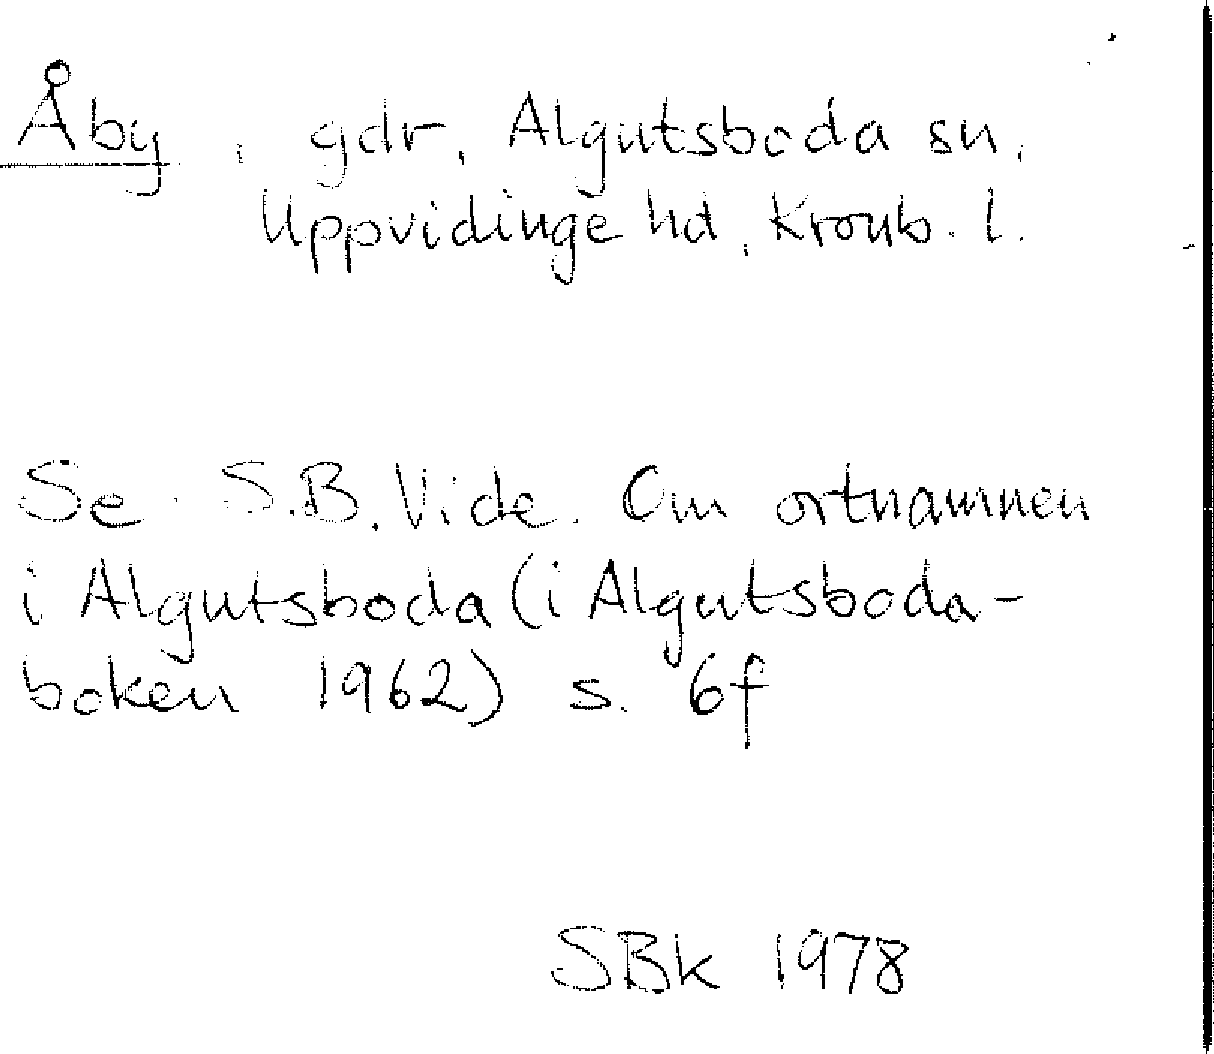 Åby, gdr, Algutsboda sn,
Uppvidinge hd, Kronb. l.
Se S.B. Vide. Om ortnamnen
i Algutsboda (i Algutsboda-
boken 1962) s. 6f
SBk 1978